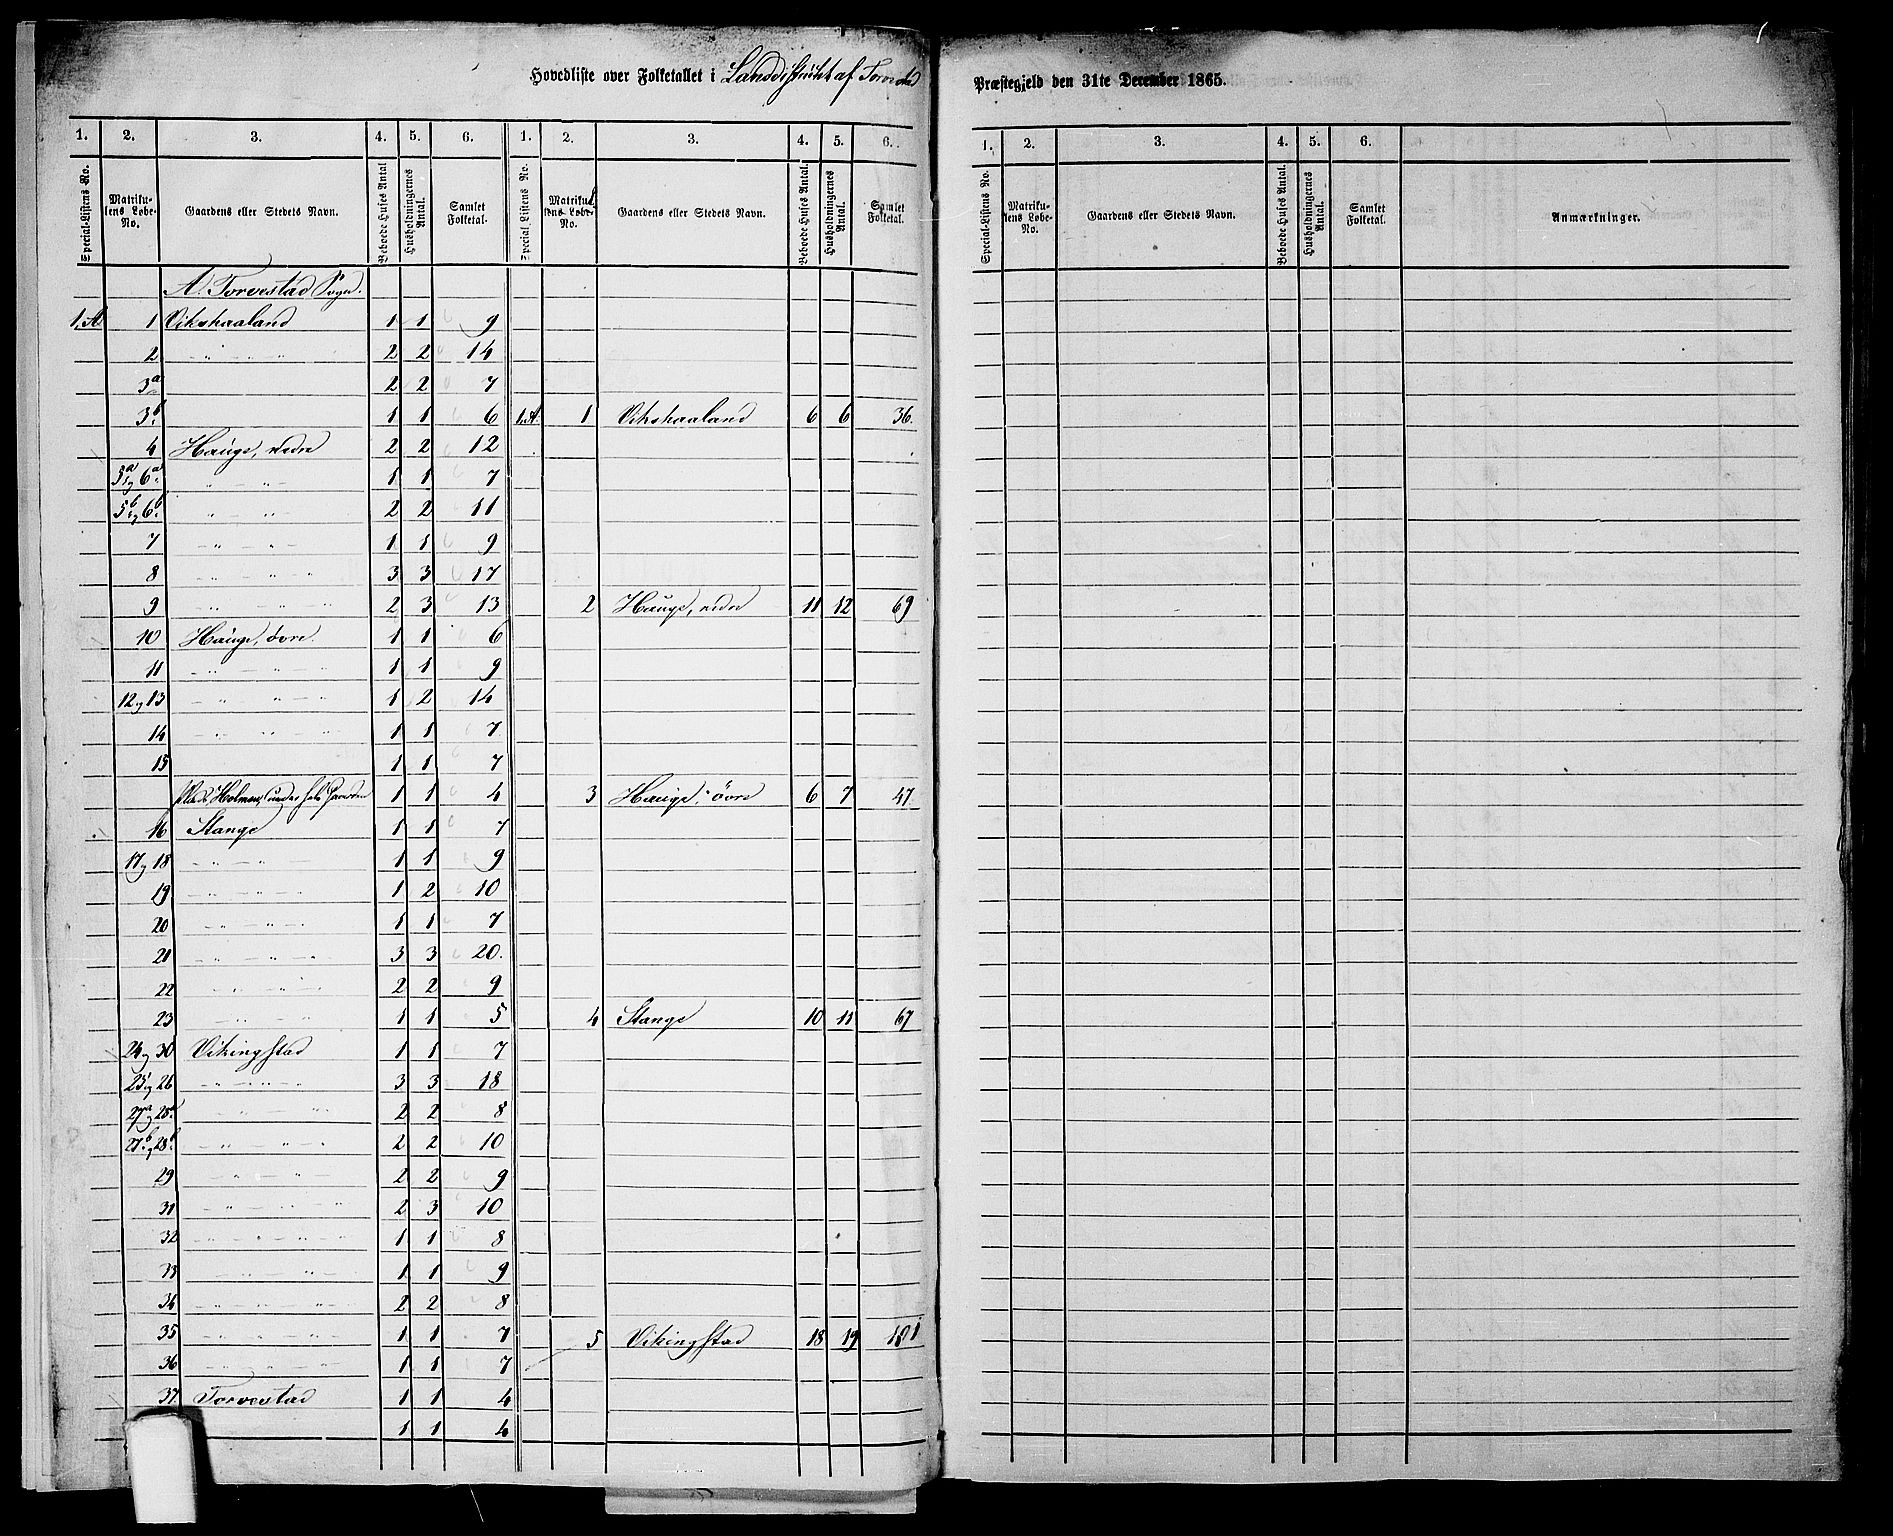 Hovedliste over Folketallet i Landdistrikt af Torvestad
Præstegjeld den 31te December 1865.
1. 2. 3. 4. 5. 6. 1. 2. 3. 4. 5. 6.
Special-Listens No. Matrikulens Løbe-No. Gaardens eller Stedets Navn. Beboede Huses Antal Husholdningernes Antal. Samlet Folketal. Special-Listens No. Matrikulens Løbe-No. Gaardens eller Stedets Navn. Beboede Huses Antal. Husholdningernes Antal. Samlet Folketal.
1. 2. 3. 4. 5. 6.
Special-Listens No. Matrikulens Løbe-No. Gaardens eller Stedets Navn. Beboede Huses Antal. Husholdningernes Antal. Samlet Folketal. Anmærkninger.
A. Torvestad Sogn.
1.A 1 Vikshaaland 1 1 9
2 " " " 2 2 14
3a 2 2 7
3b. 1 1 6 1.A. 1 Vikshaaland 6 6 36.
4 Hauge, nedre 2 2 12
5a og 6a. " " 1 1 7
5b og 6b. " " 2 2 11
7 " " 1 1 9
8 " " " 3 3 17
9 " " " 2 3 13 2 Hauge, nedre 11 12 69
10 Hauge, övre. 1 1 6
11 " " 1 1 9
12 og 13 " " 1 2 14
14 " " " 1 1 7
15 1 1 7
Plads Holmen, under hele Gaarden 1 1 4 3 Hauge, övre 6 7 47.
16 Stange 1 1 7
17 og 18 " " 1 1 9
19 " " 1 2 10
20 " " 1 1 7
21 " " " 3 3 20.
22 " " 2 2 9
23 " " 1 1 5 4 Stange 10 11 67
24 og 30 Vikingstad 1 1 7
25 og 26 " " " 3 3 18
27a og 28a " " 2 2 8
27b. og 28b. " " " 2 2 10
29 " " 2 2 9
31 " " " 2 3 10
32 " " " 1 1 8
33 " " 1 1 9
34 " " " 2 2 8
35 " " " 1 1 7 5 Vikingstad 18 19 101
36 " " " 1 1 7
37 Torvestad 1 1 4
1 1 4